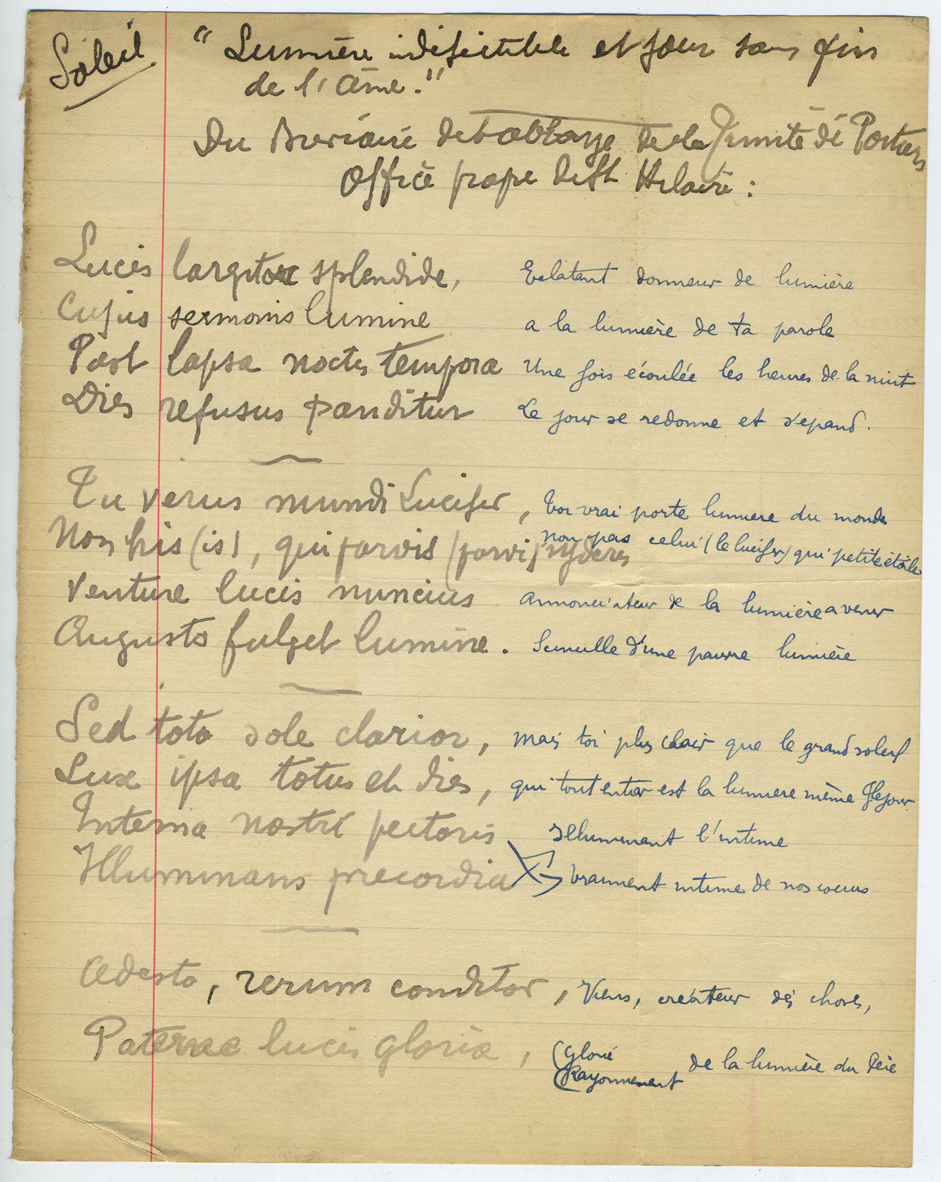 Soleil
" Lumière indéfectible et jour sans fin
de l'Ame."
Du Breviaire de l'abbaye de la Trinité de Poitiers
Office propre de St Hilaire :
Lucis largitor splendide, Eclatant donneur de lumière
Cujus sermonis lumine a la lumière de ta parole
Post lapsa noctis tempora Une fois écoulée les heures de la nuit
Dies refusus panditur Le jour se redonne et s'epand.
Tu verus mundi Lucifer, toi vrai porte lumiere du monde
Non his (is), qui parvis (parvi) syderis non pas celui (le lucifer) qui petite étoile
Venture lucis nuncius annonciateur de la lumière a venir
Augusto fulget lumine. Scintille d'une pauvre lumière
Sed toto sole clarior, mais toi plus clair que le grand soleil
Lux ipsa totus et dies, qui tout entier est la lumiere même & le jour
Interna nostri pectoris Illuminant l'intime
Illuminans precordia Vraiment intime de nos coeurs
Adesto, rerum conditor, Viens, créateur des choses,
Paternae lucis gloria, (Gloire
(Rayonnement de la lumière du Père